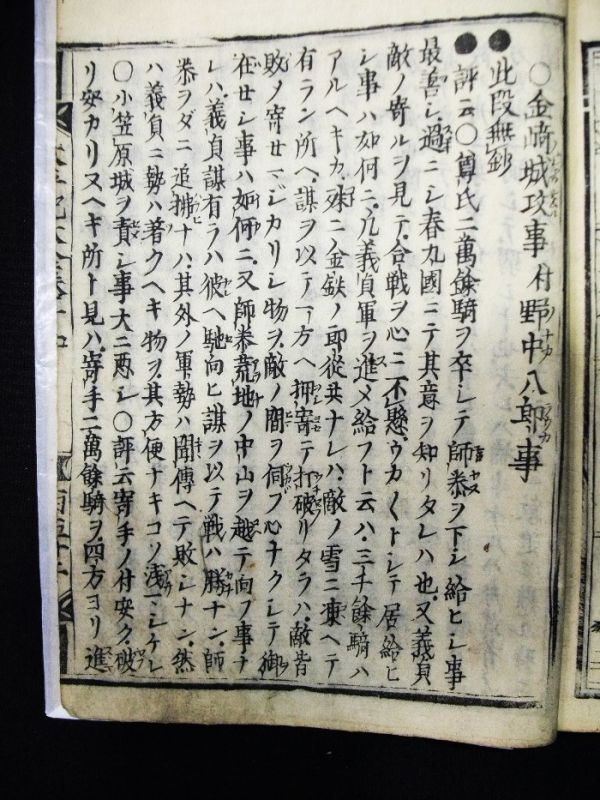 ○金﨑城攻事付野中八郎事
此段無鈔
評云○尊氏二萬餘騎ヲ卒シテ師泰ヲ下シ給ヒシ事
最善シ過ニシ春九國ニテ其意ヲ知リタレハ也又義貞
敵ノ寄ルヲ見テ合戦ヲ心ニ不懸ウカ〱トシテ居給ヒ
シ事ハ如何ニ凡義貞軍ヲ進メ給フト云ハ三千餘騎ハ
アルヘキカ殊ニ金鉄ノ郎從共ナレハ敵ノ雪ニ凍ヘテ
有ラン所ヘ謀ヲ以テ一方ヘ押寄テ打破リタラハ敵皆
敗メ寄セマジカリシ物ヲ敵ノ間ヲ伺フ心ナクシテ御
在セシ事ハ如何ニ又師泰荒地ノ中山ヲ越テ向フ事ナ
レハ義貞謀有ラハ彼ヘ馳向ヒ謀ヲ以テ戦ハ勝ナン師
泰ヲダニ追拂ナハ其外ノ軍勢ハ聞傳ヘテ敗シナン然
ハ義貞ニ勢ハ著クヘキ物ヲ其方便ナキコソ浅マシケレ
○小笠原城ヲ責シ事大ニ悪シ○評云寄手ノ付安ク破
リ安カリヌヘキ所ト見ハ寄手二萬餘騎ヲ四方ヨリ進